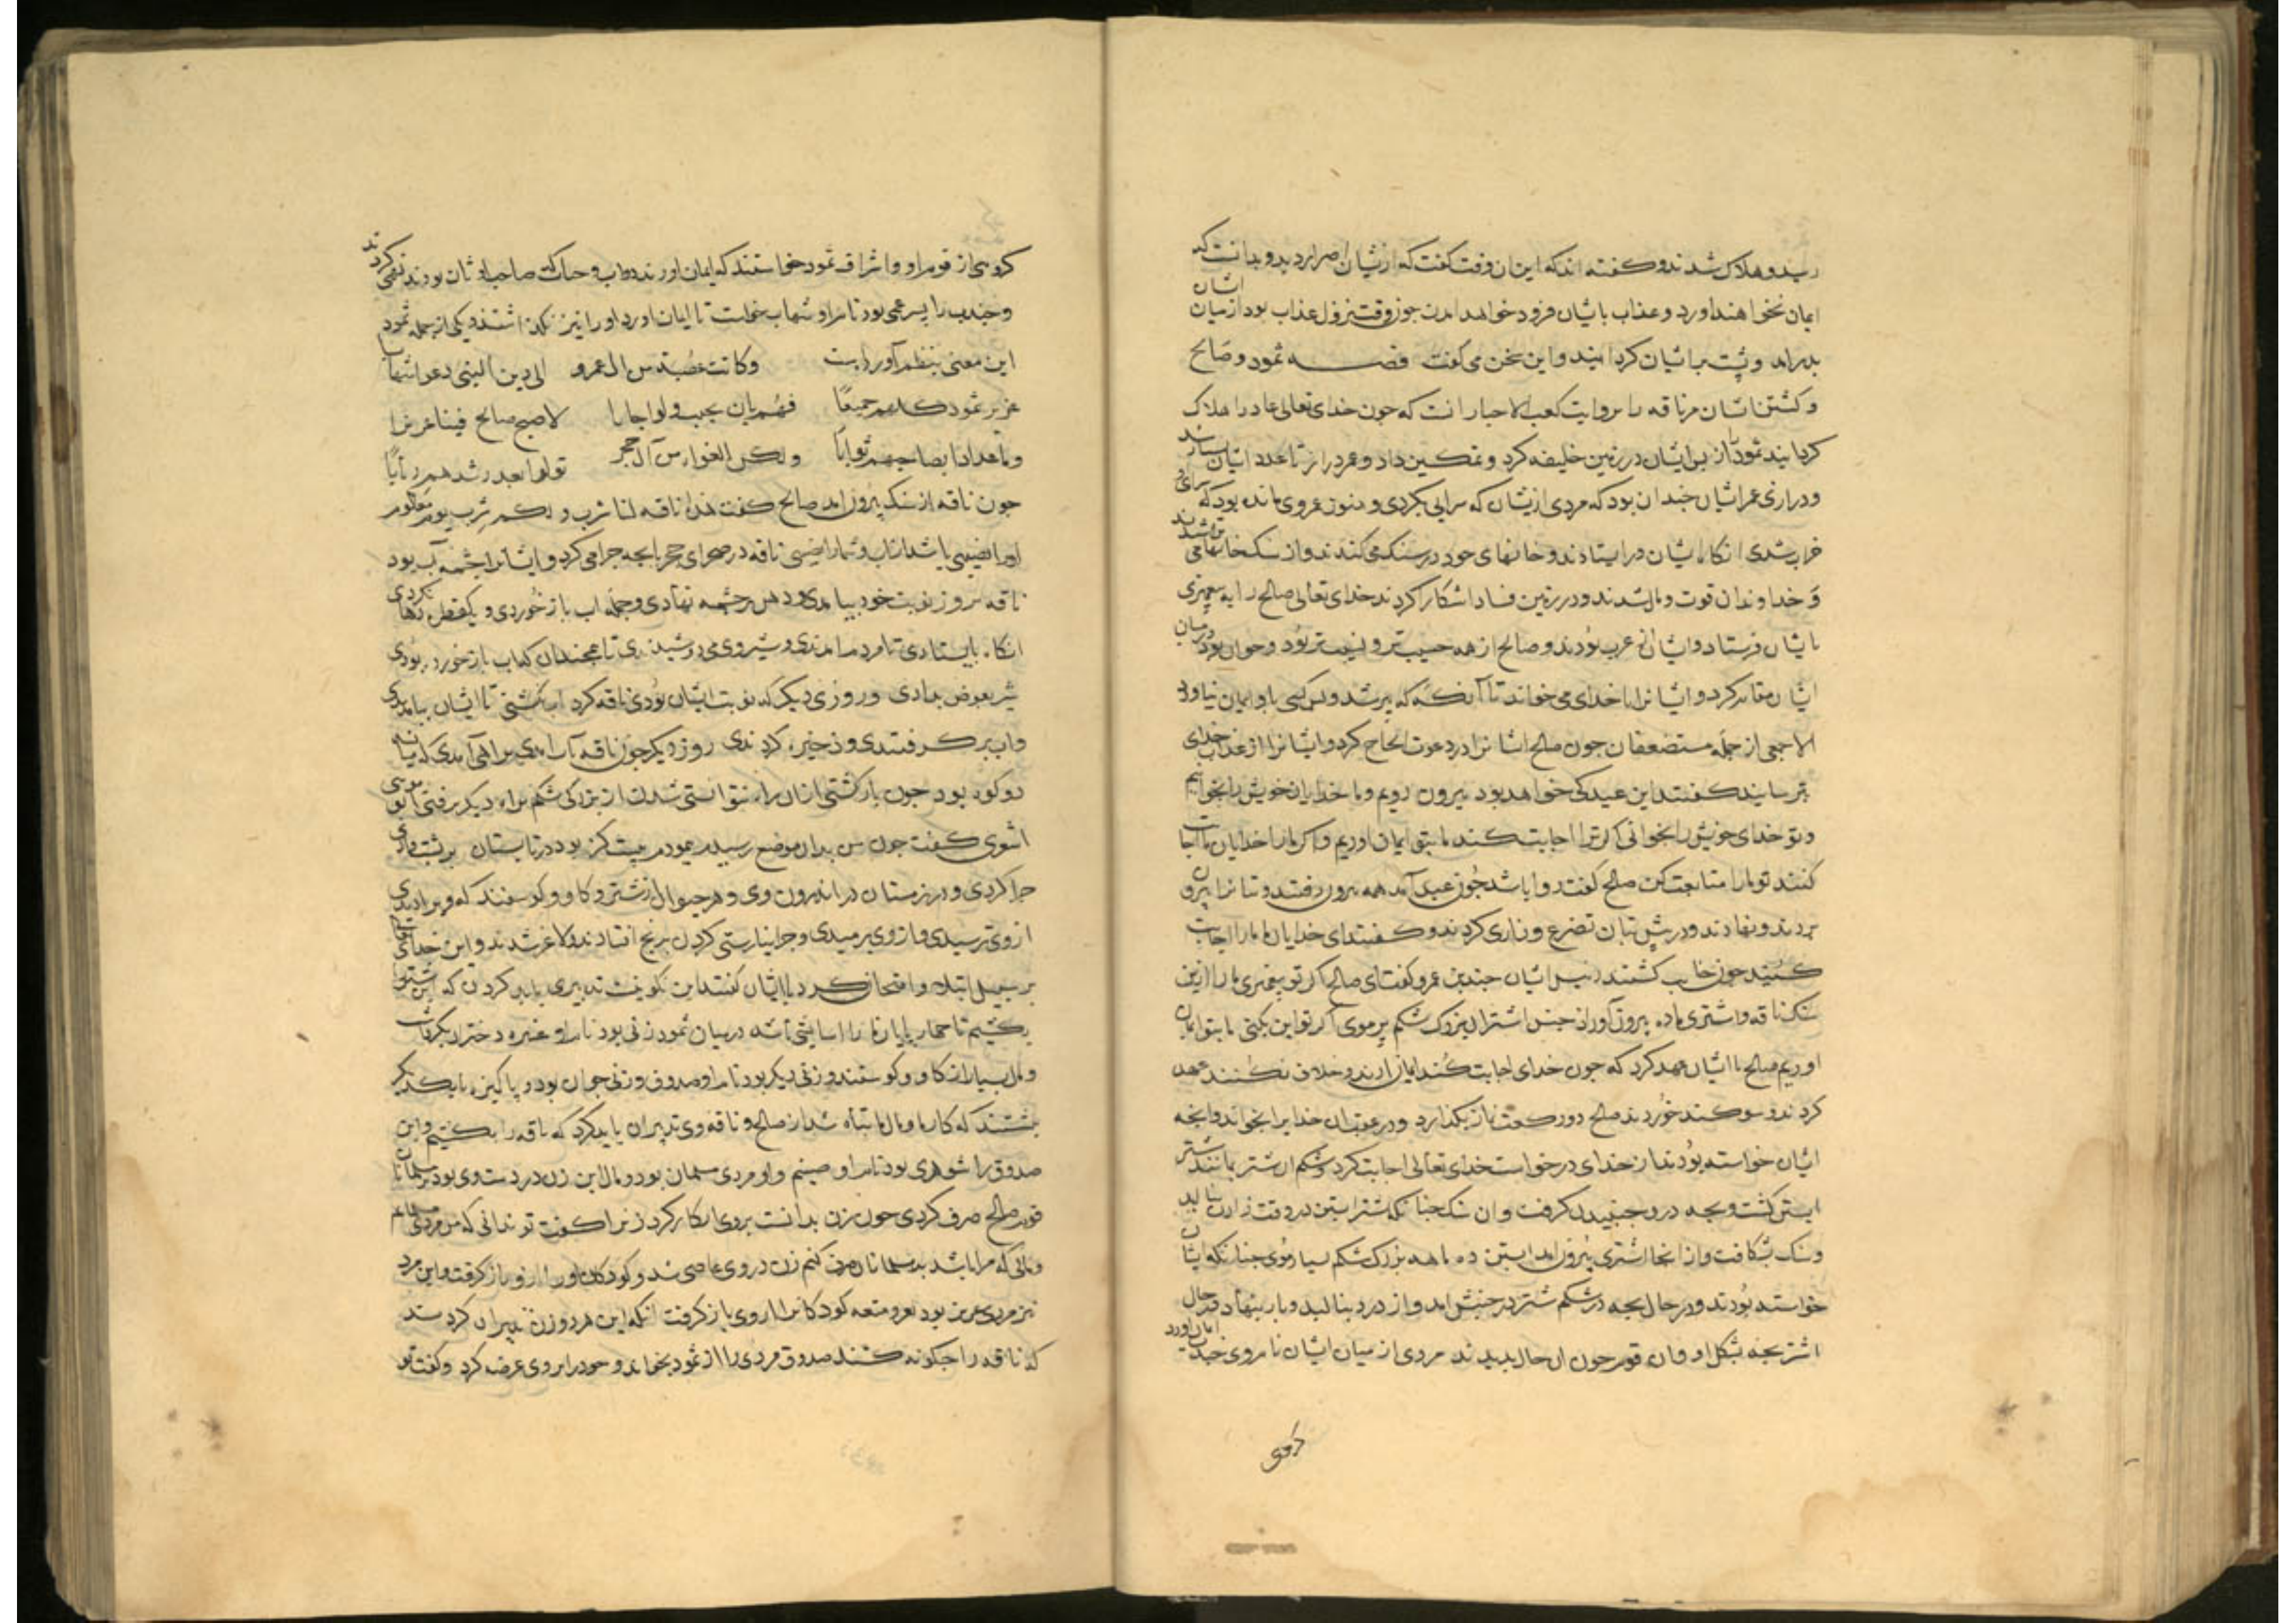 رسید و هلاک شدند و گفته اند که این ان وقت گفت که از یشان اصرار دید و بدانست که ایشان
ایمان نخواهند اورد و عذاب بایشان فرود خواهد امدن چون وقت نزول عذاب بود از میان
بدر امد و پشت برایشان کردانید و این سخن می گفت قصه ثمود و صالح
و کشتن ایشان مر ناقه را بروایت کعب الاحبار انست که چون خدای تعالی عاد را هلاک
کردانید ثمود را از پس ایشان در زمین خلیفه کرد و تمکین داد و عمر دراز تا عدد ایشان بسیار شد
و درازی عمر ایشان چندان بود که مردی ازیشان که سرایی بکردی و هنوز عمر وی مانده بود که سرای
خراب شدی انکاه ایشان در ایستادند و خانهای خود در سنک می کندند و از سنک خانها می تراشیدند
و خداوندان قوت و مال شدند و در زمین فساد اشکارا کردند خدای تعالی صالح را به پیغمبری
بایشان فرستاد و ایشان عرب بودند و صالح از همه حسیب تر و نسیب تر بود و جوان بود در میان
ایشان مقام کرد و ایشانرا با خدای می خواند تا آنکه که پیر شد و کس باو ایمان نیاورد
الا جمعی از جمله مستضعفان چون صالح ایشانرا در دعوت الحاح کرد و ایشانرا از عذاب خدای
بترسانید گفتند این عید کی خواهد بود بیرون رویم و ما خدایان خویش را بخوانیم
و تو خدای خویش را بخوانی اکر ترا اجابت کنند ما بتو ایمان اوریم و اکر ما را خدایان ما اجابت
کنند تو ما را متابعت کن صالح گفت روا باشد چون عید آمد همه بیرون رفتند و بتانرا بیرون
بردند و نهادند و در پیش بتان تضرع و زاری کردند و گفتند ای خدایان ما ما را اجابت
کنید چون خایب کشتند رئیس ایشان جندب بن عمرو گفت ای صالح اکر تو پیغمبری ما را ازین
سنک ناقه و اشتری ماده بیرون آور از جنس اشتران بزرک شکم پر موی اکر تو این بکنی ما بتو ایمان
اوریم صالح با ایشان عهد کرد که چون خدای اجابت کند ایمان ارند و خلاف نکنند عهد
کردند و سوکند خوردند صالح دو رکعت نماز بکذارد و در عقب ان خدایرا بخواند و انچه
ایشان خواسته بودند از خدای درخواست خدای تعالی اجابت کرد و شکم ان شتر بمانند شتر
ابستن کشت و بچه درو جنبیدن کرفت و ان سنک چنانکه شتر ابستن در وقت زادن بنالید
و سنک بشکافت و از انجا اشتری بیرون امد ابستن ده ماهه بزرک شکم بسیار موی چنانکه ایشان
خواسته بودند و در حال بچه در شکم شتر در جنبش امد و از درد بنالید و بار بنهاد در حال
اشتر بچه بشکل او و ان قوم چون ان حال بدیدند مردی از میان ایشان نام وی جندب ایمان اورد
کروهی از قوم او و اشراف ثمود خواستند که ایمان اورند ذواب و حباب که صاحب اوثان بودند نهی کردند
و جندب را پسر عمی بود نام او شهاب خواست تا ایمان اورد او را نیز نکذاشتند و یکی از جمله ثمود
این معنی بنظم آورد بیت وکانت عصبة من ال عمرو الی دین النبی دعوا شهابا
عزیز ثمود کلهم جمیعًا فهم بان یجیب ولو اجابا لاصبح صالح فینا عزیزا
وما عدلوا بصاحبهم ذوابا ولکن الغواة من آل حجر تولوا بعد رشدهم ذیابا
چون ناقه از سنک بیرون امد صالح گفت هذه ناقه لها شرب ولکم شرب یوم معلوم
او را نصیبی باشد از اب و شما را نصیبی ناقه در صحرای حجر با بچه چرا می کرد و ایشانرا چشمه آب بود
ناقه بروز نوبت خود بیامدی و دهن بر چشمه نهادی و جمله اب باز خوردی و یک قطره رها نکردی
انکاه بایستادی تا مردم امدندی و شیر وی می دوشیدندی تا همچندان که اب باز خورده بودی
شیر بعوض بدادی و روزی دیکر که نوبت ایشان بودی ناقه کرد اب نکشتی تا ایشان بیامدندی
و اب برکرفتندی و ذخیره کردندی روز دیکر چون ناقه بآب امدی براهی آمدی که میانه
دو کوه بود چون بازکشتی ازان راه نتوانستی شدن از بزرکی شکم براه دیکر رفتی ابو موسی
اشعری گفت چون من بدان موضع رسیدم بپیمودم شصت کز بود در تابستان بر پشت وادی
چرا کردی و در زمستان در اندرون وی و هر حیوان از شتر و کاو و کوسفند که ویرا دیدندی
از وی ترسیدی و از وی برمیدی و چرا نیارستی کردن برنج افتادند و لاغر شدند و این خدای تعالی
بر سبیل ابتلا و امتحان کرد با ایشان گفتند این نکو نیست تدبیری باید کردن که این شتر را
بکشیم تا چهارپایان ما را اسایشی باشد در میان ثمود زنی بود نام او عنیزه دختران بکر داشت
و مال بسیار از کاو و کوسفند و زنی دیکر بود نام او صدوف و زنی جوان بود و پاکیزه با یکدیکر
بنشستند که کار ما و مال ما تباه شد از صالح و ناقه وی تدبیر ان باید کرد که ناقه را بکشیم و این
صدوق را شوهری بود نام او صیثم و او مردی مسلمان بود و مال این زن در دست وی بود بر مسلمانان
قوم صالح صرف کردی چون زن بدانست بر وی انکار کرد زنرا گفت تو ندانی که من مردی مسلمانم
و مالی که مرا باشد بر مسلمانان صرف کنم زن در وی عاصی شد و کودکان او را ازو باز کرفت و این مرد
نیز مردی عزیز بود بعز و متعه کودکانرا از وی باز کرفت انکه این هر دو زن تدبیر ان کردند
که ناقه را چکونه کشند صدوق مردی را از ثمود بخواند و خود را بر وی عرضه کرد و گفت تو